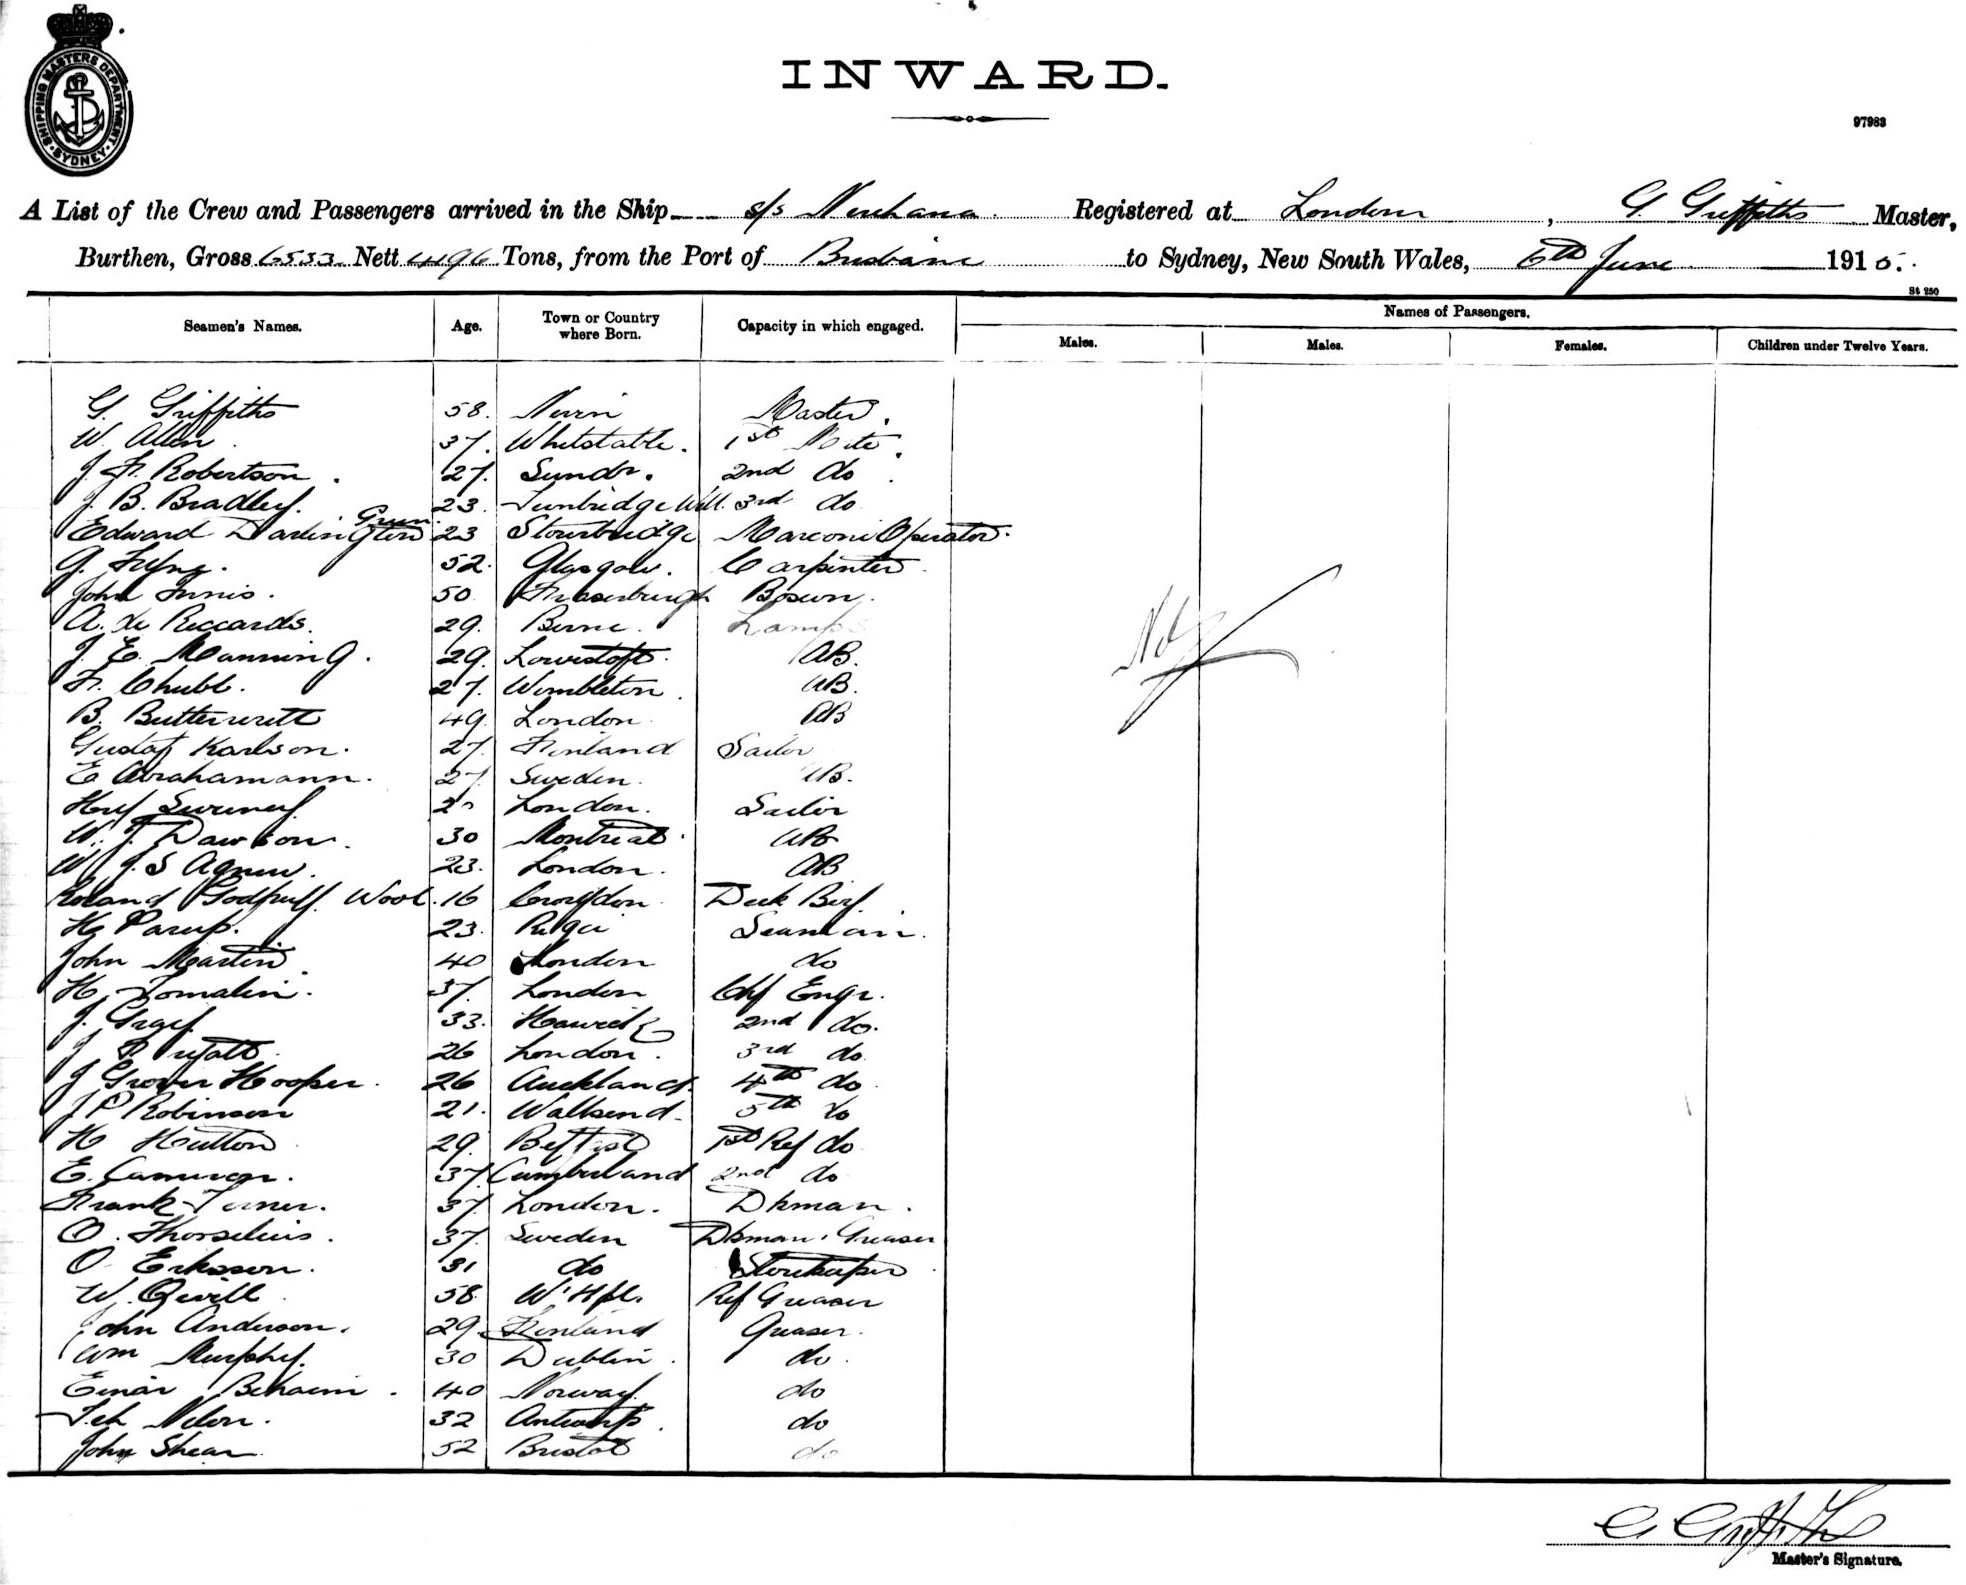 SHIPPING MASTERS DEPARTMENT. SYDNEY
INWARD.
97983
A List of the Crew and Passengers arrived in the Ship s/s Registered at London, G. Griffiths Master,
Burthen, Gross 6533 Nett 4196 Tons, from the Port of Brisbane to Sydney, New South Wales, 6th June 1915.
St 250
Seamen's Names. Age. Town or Country where Born. Capacity in which engaged. Names of Passengers.
Males. Males. Females. Children under Twelve Years.
G. Griffiths 58. Nevin Master.
W. Allen 37. Whitstable. 1st Mate.
J. F. Robertson. 27. Sundr. 2nd do
J. B. Bradley. 23. Tunbridge Well. 3rd do
Edward Darlington Green 23 Stourbridge Marconi Operator.
G. 52. Glasgow. Carpenter
John Innis. 50 Fraserburgh Bosun.
A. de Riccards. 29. Berne. Lamps
J. E. Manning. 29. Lowestoft. AB.
F. Chubb. 27. Wimbleton AB.
B. Butterwitt 49. London AB
Gustaf Karlson. 27. Finland Sailor
E Abrahamann. 27. Sweden. AB.
Hy Sweeney London. Sailor
W. J. Dawson. 30 Montreal AB
W J. S Agnew. 23. London. AB
Roland Godfrey Wool. 16 Croydon Deck Boy.
H. Parup. 23. Riga Seaman.
John Martin 40 London do
H. Tomalin. 37. London Chf Engr.
J. Gray 33. Hawick 2nd do.
J Pryatt 26 London. 3rd do
J Grover Hooper. 26 Auckland. 4th do
J P Robinson 21. Wallsend 5th do
H Hutton 29. Belfast 1st Ref do
E. Cameron. 37. Cumberland 2nd do
Frank Turner. 37. London. Dkman.
O. Thorselius. 37. Sweden Dkman. Greaser
O. Eriksson. 31 do Storekeeper
W. Revill 58 W' Hpl. Ref Greaser
John Anderson. 29. Finland Greaser.
Wm Murphy. 30 Dublin. do.
Einar 40 Norway do
32 Antwerp. do
John Shean 52 Bristol do
Nil
G Griffiths
Master's Signature.